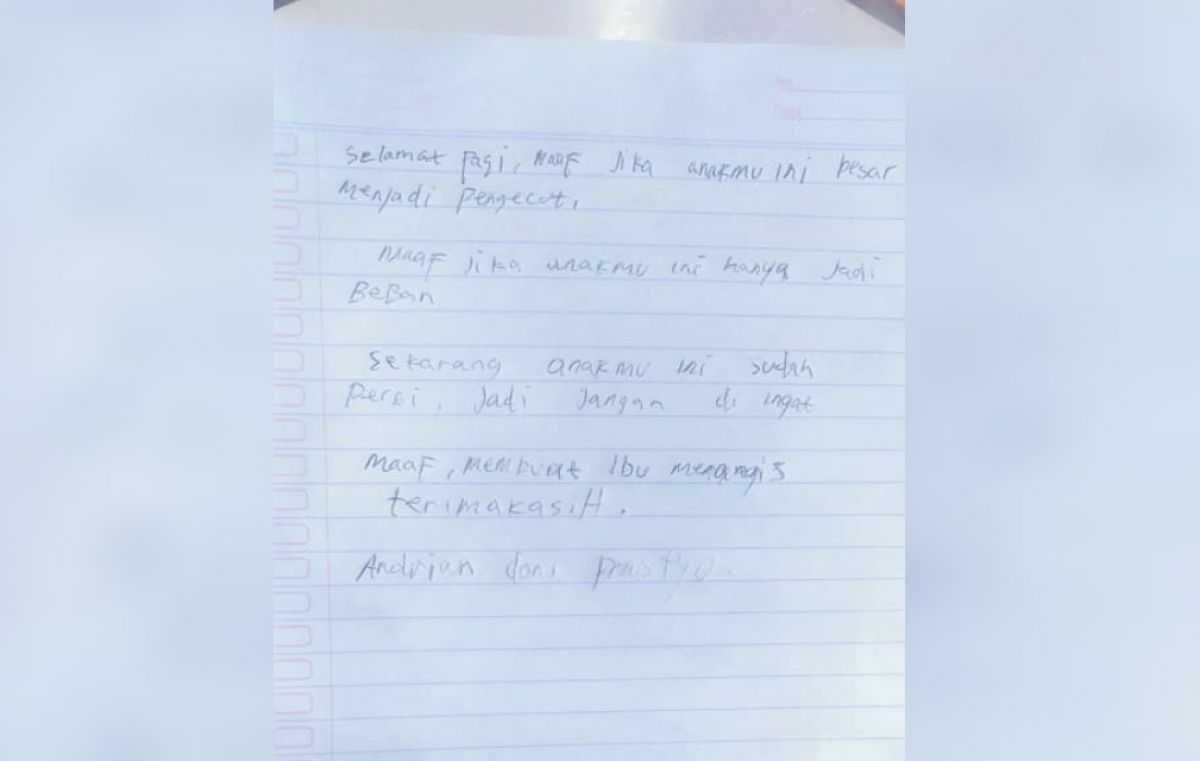 Selamat Pagi, Maaf Jika anakmu ini besar
Menjadi Pengecut,
Maaf Jika anakmu ini hanya Jadi
BeBan
Sekarang anakmu ini sudah
Pergi, Jadi Jangan di ingat
Maaf, membuat Ibu menangis
terimakasiH.
Andrian Doni Prastyo.